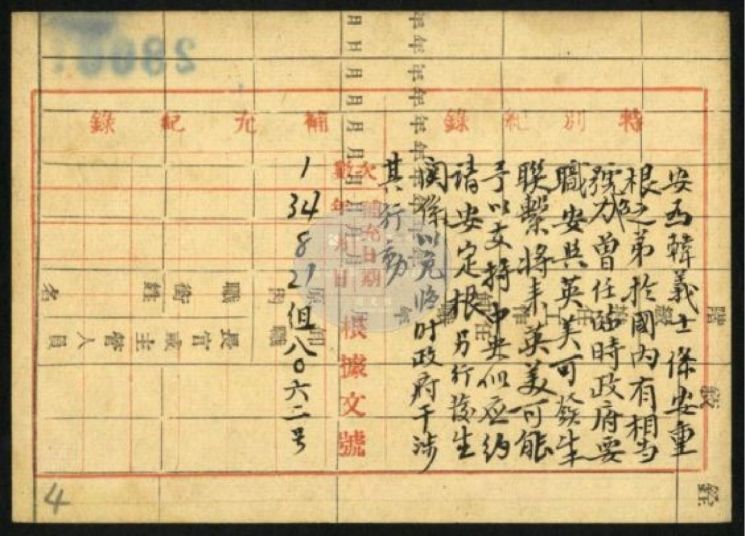 特別紀錄
安為韓義士係安重
根之弟於國內有相當
號召力曾任臨時政府要
職安與英美可發生
聯繫將來英美可能
予以支持中央似應約
請安定根另行發生
關係以免臨時政府干涉
其行動
補充紀錄
次數
補充日期
年月日
根據文號
1 34 8 21 但八〇六二号
長官或主管人員
職銜姓名
階級
4